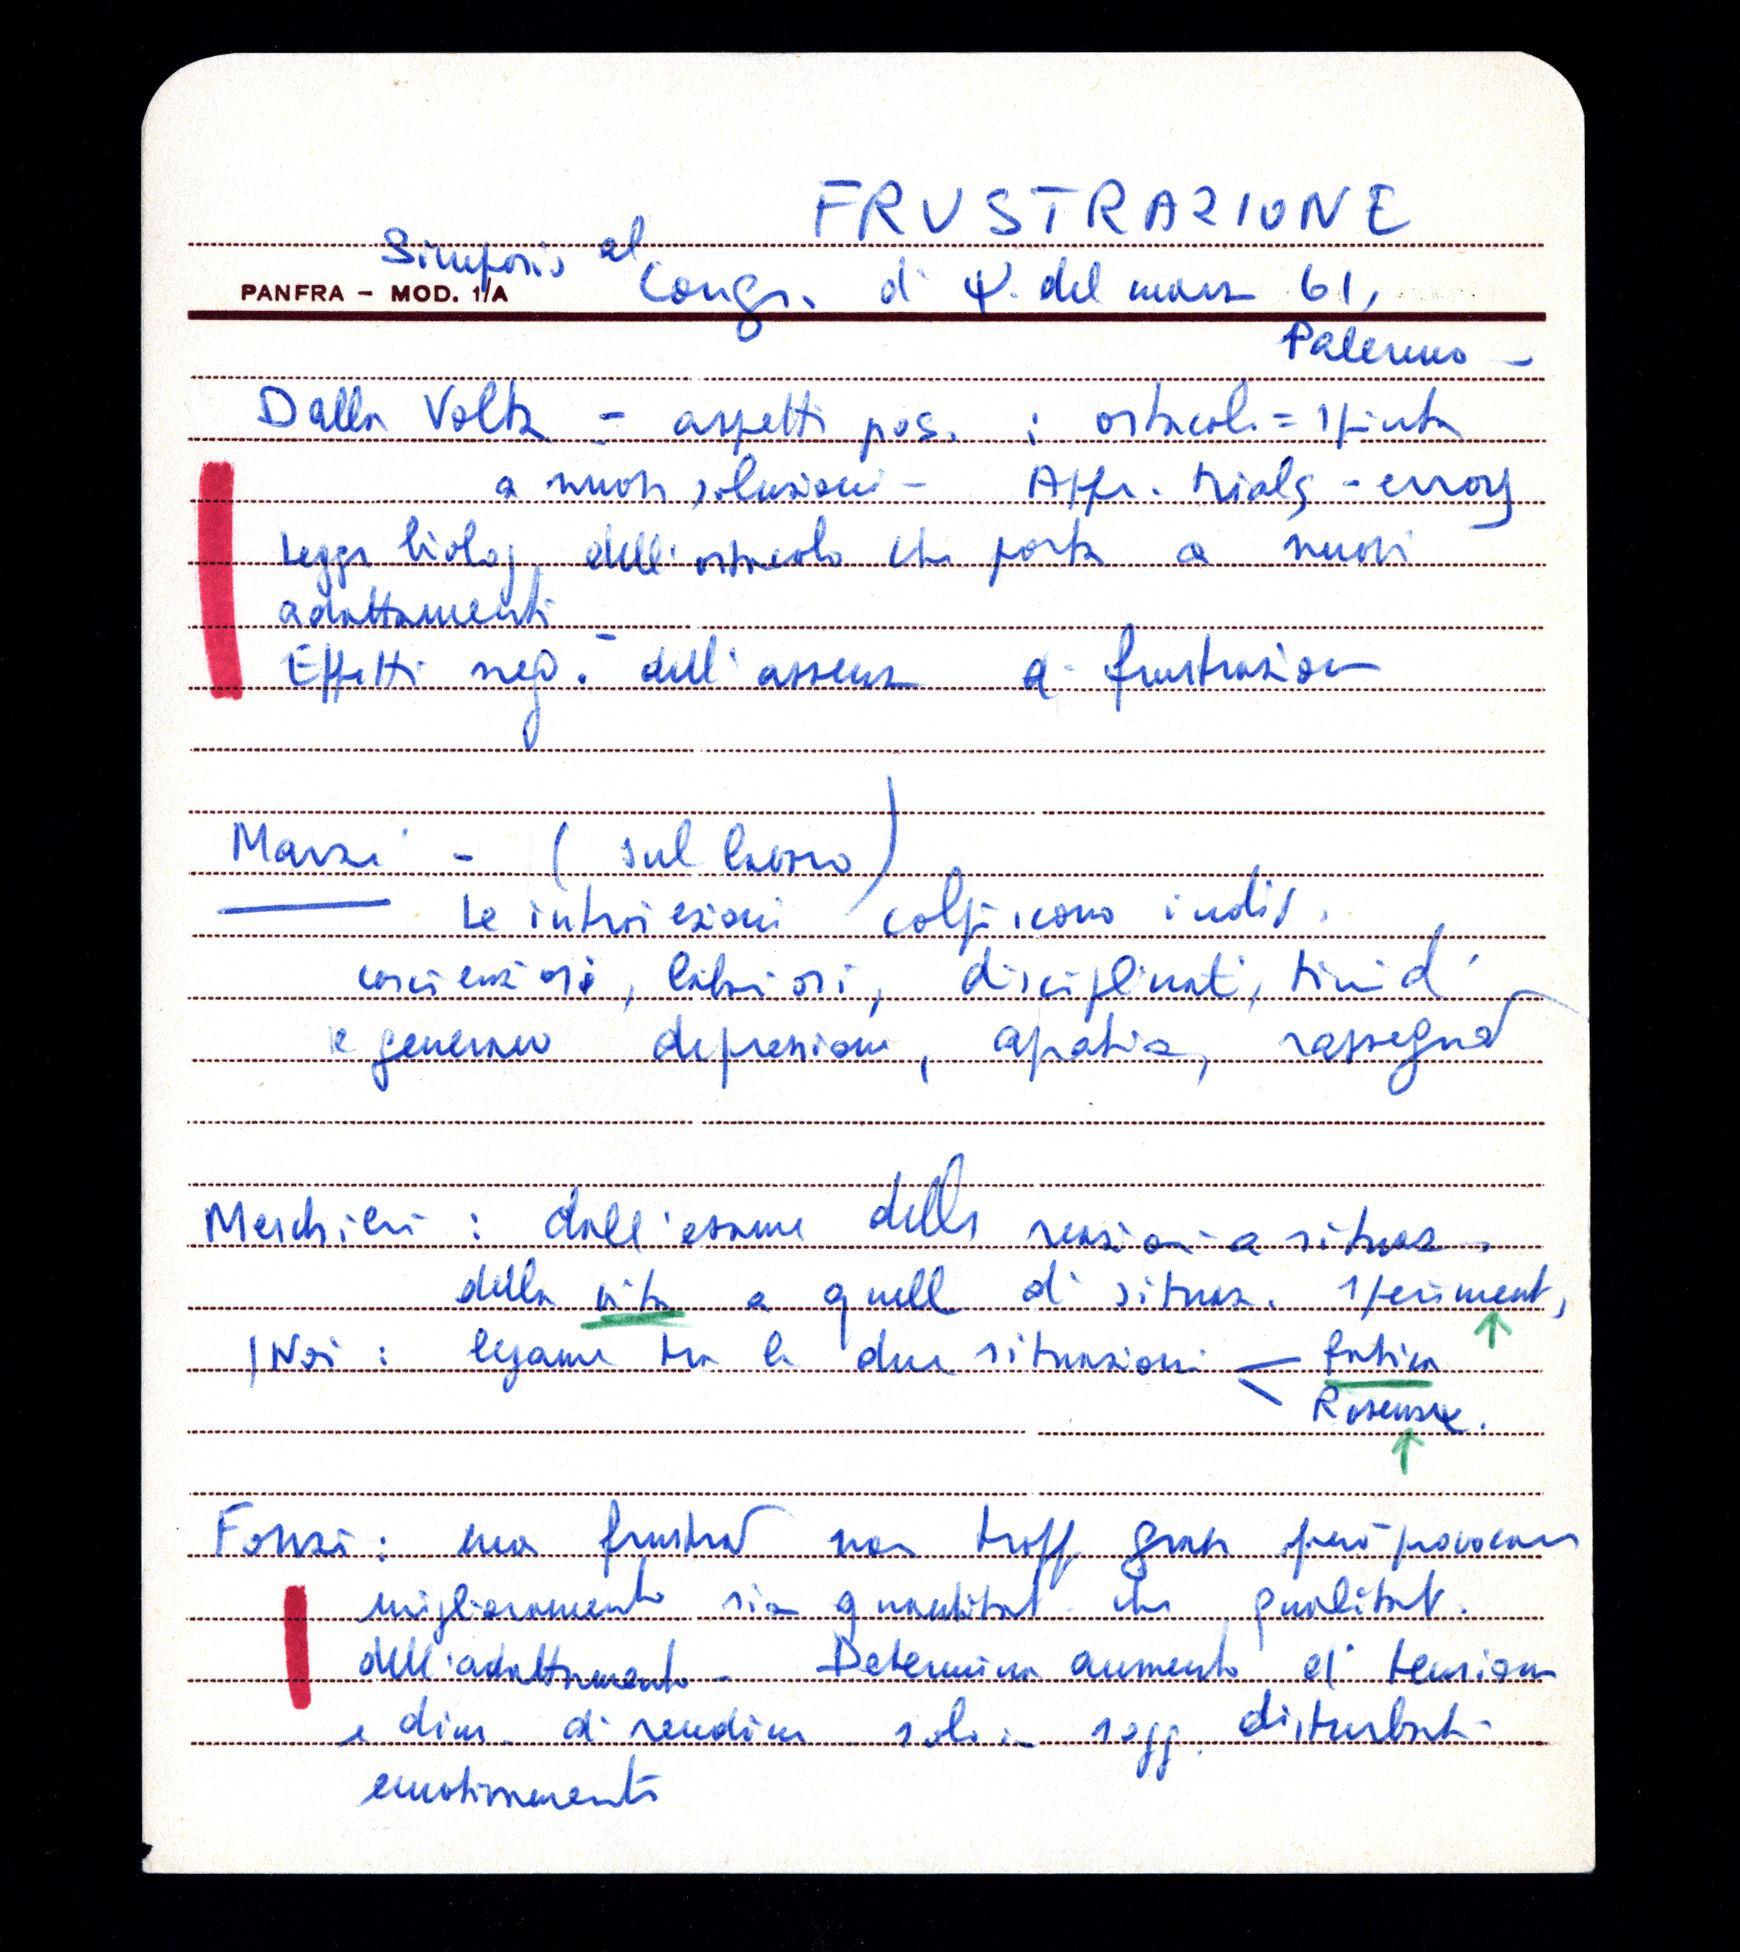 FRUSTRAZIONE
Simposio al
PANFRA – MOD. 1/A
Congr. di Ψ. del marzo 61,
Palermo –
Dalla Volta – aspetti pos. : ostacoli = spinta
a nuove soluzioni – Appr. trials - errors
Legge biolog dell'ostacolo che porta a nuovi
adattamenti –
Effetti neg. dell'assenza di frustrazione
Marzi – (sul lavoro)
Le introiezioni colpiscono indiv.
coscienziosi, laboriosi, disciplinati, timidi
e generano depressione, apatia, rassegnaz
Meschieri : dall'esame delle reazioni a situaz.
della vita a quelle di situaz. speriment,
Noi : legame tra le due situazioni < fatica
Rosenzw.
Fonzi : una frustraz non tropp grave può provocare
miglioramento sia quantitat che qualitat.
dell'adattamento – Determina aumento di tensione
e dim. di rendim solo in sogg. disturbati
emotivamente